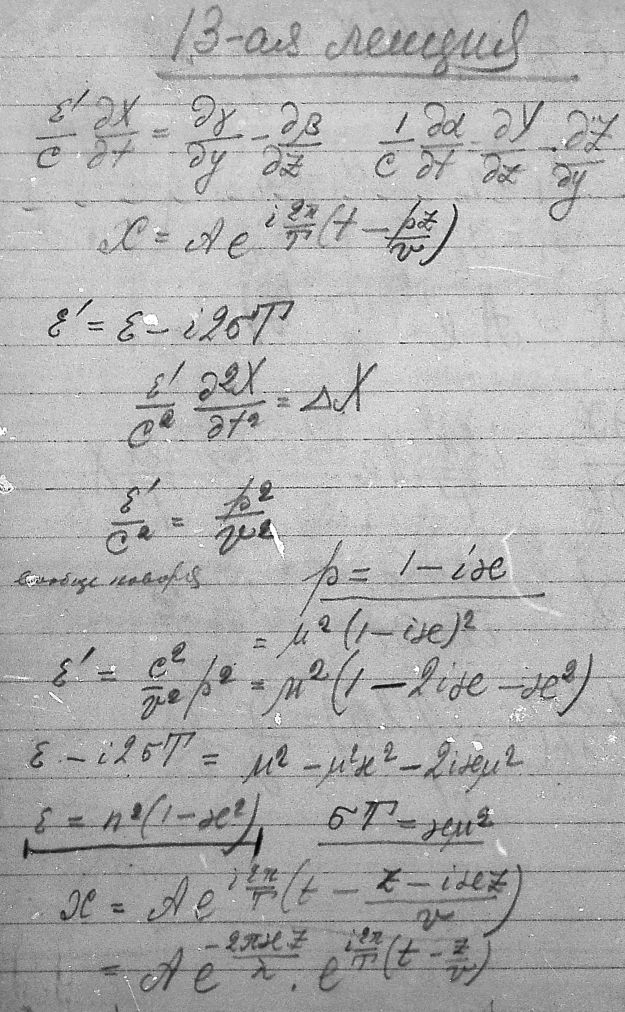 13-ая лекция
ε'/c ∂X/∂t = ∂γ/∂y - ∂β/∂z 1/c ∂α/∂t = ∂Y/∂z - ∂Z/∂y
X = A e^{i 2π/T (t - pz/v)}
ε' = ε - i2σT
ε'/c² ∂2X/∂t² = ΔX
ε'/c² = p²/v²
вообще говоря p = 1 - iϰ
= μ²(1 - iϰ)²
ε' = c²/v² p² = μ²(1 - 2iϰ - ϰ²)
ε - i2σT = μ² - μ²ϰ² - 2iϰμ²
ε = n²(1 - ϰ²) σT = ϰμ²
X = A e^{i 2π/T (t - (z - iϰz)/v)}
= A e^{-2πϰz/λ} . e^{i 2π/T (t - z/v)}